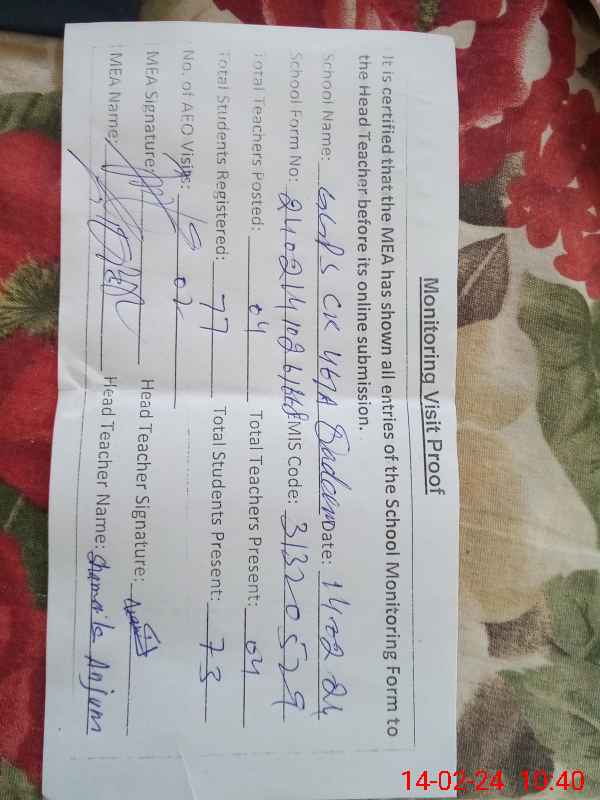 Monitoring Visit Proof
It is certified that the MEA has shown all entries of the School Monitoring Form to
the Head Teacher before its online submission.
School Name: GGPS CK 46/A Date: 14-02-24
School Form No: EMIS Code: 31320529
Total Teachers Posted: 04 Total Teachers Present: 04
Total Students Registered: 77 Total Students Present: 73
No. of AEO Visits: 02
MEA Signature: Head Teacher Signature:
MEA Name: Head Teacher Name: Shamaila Anjum
14-02-24 10:40